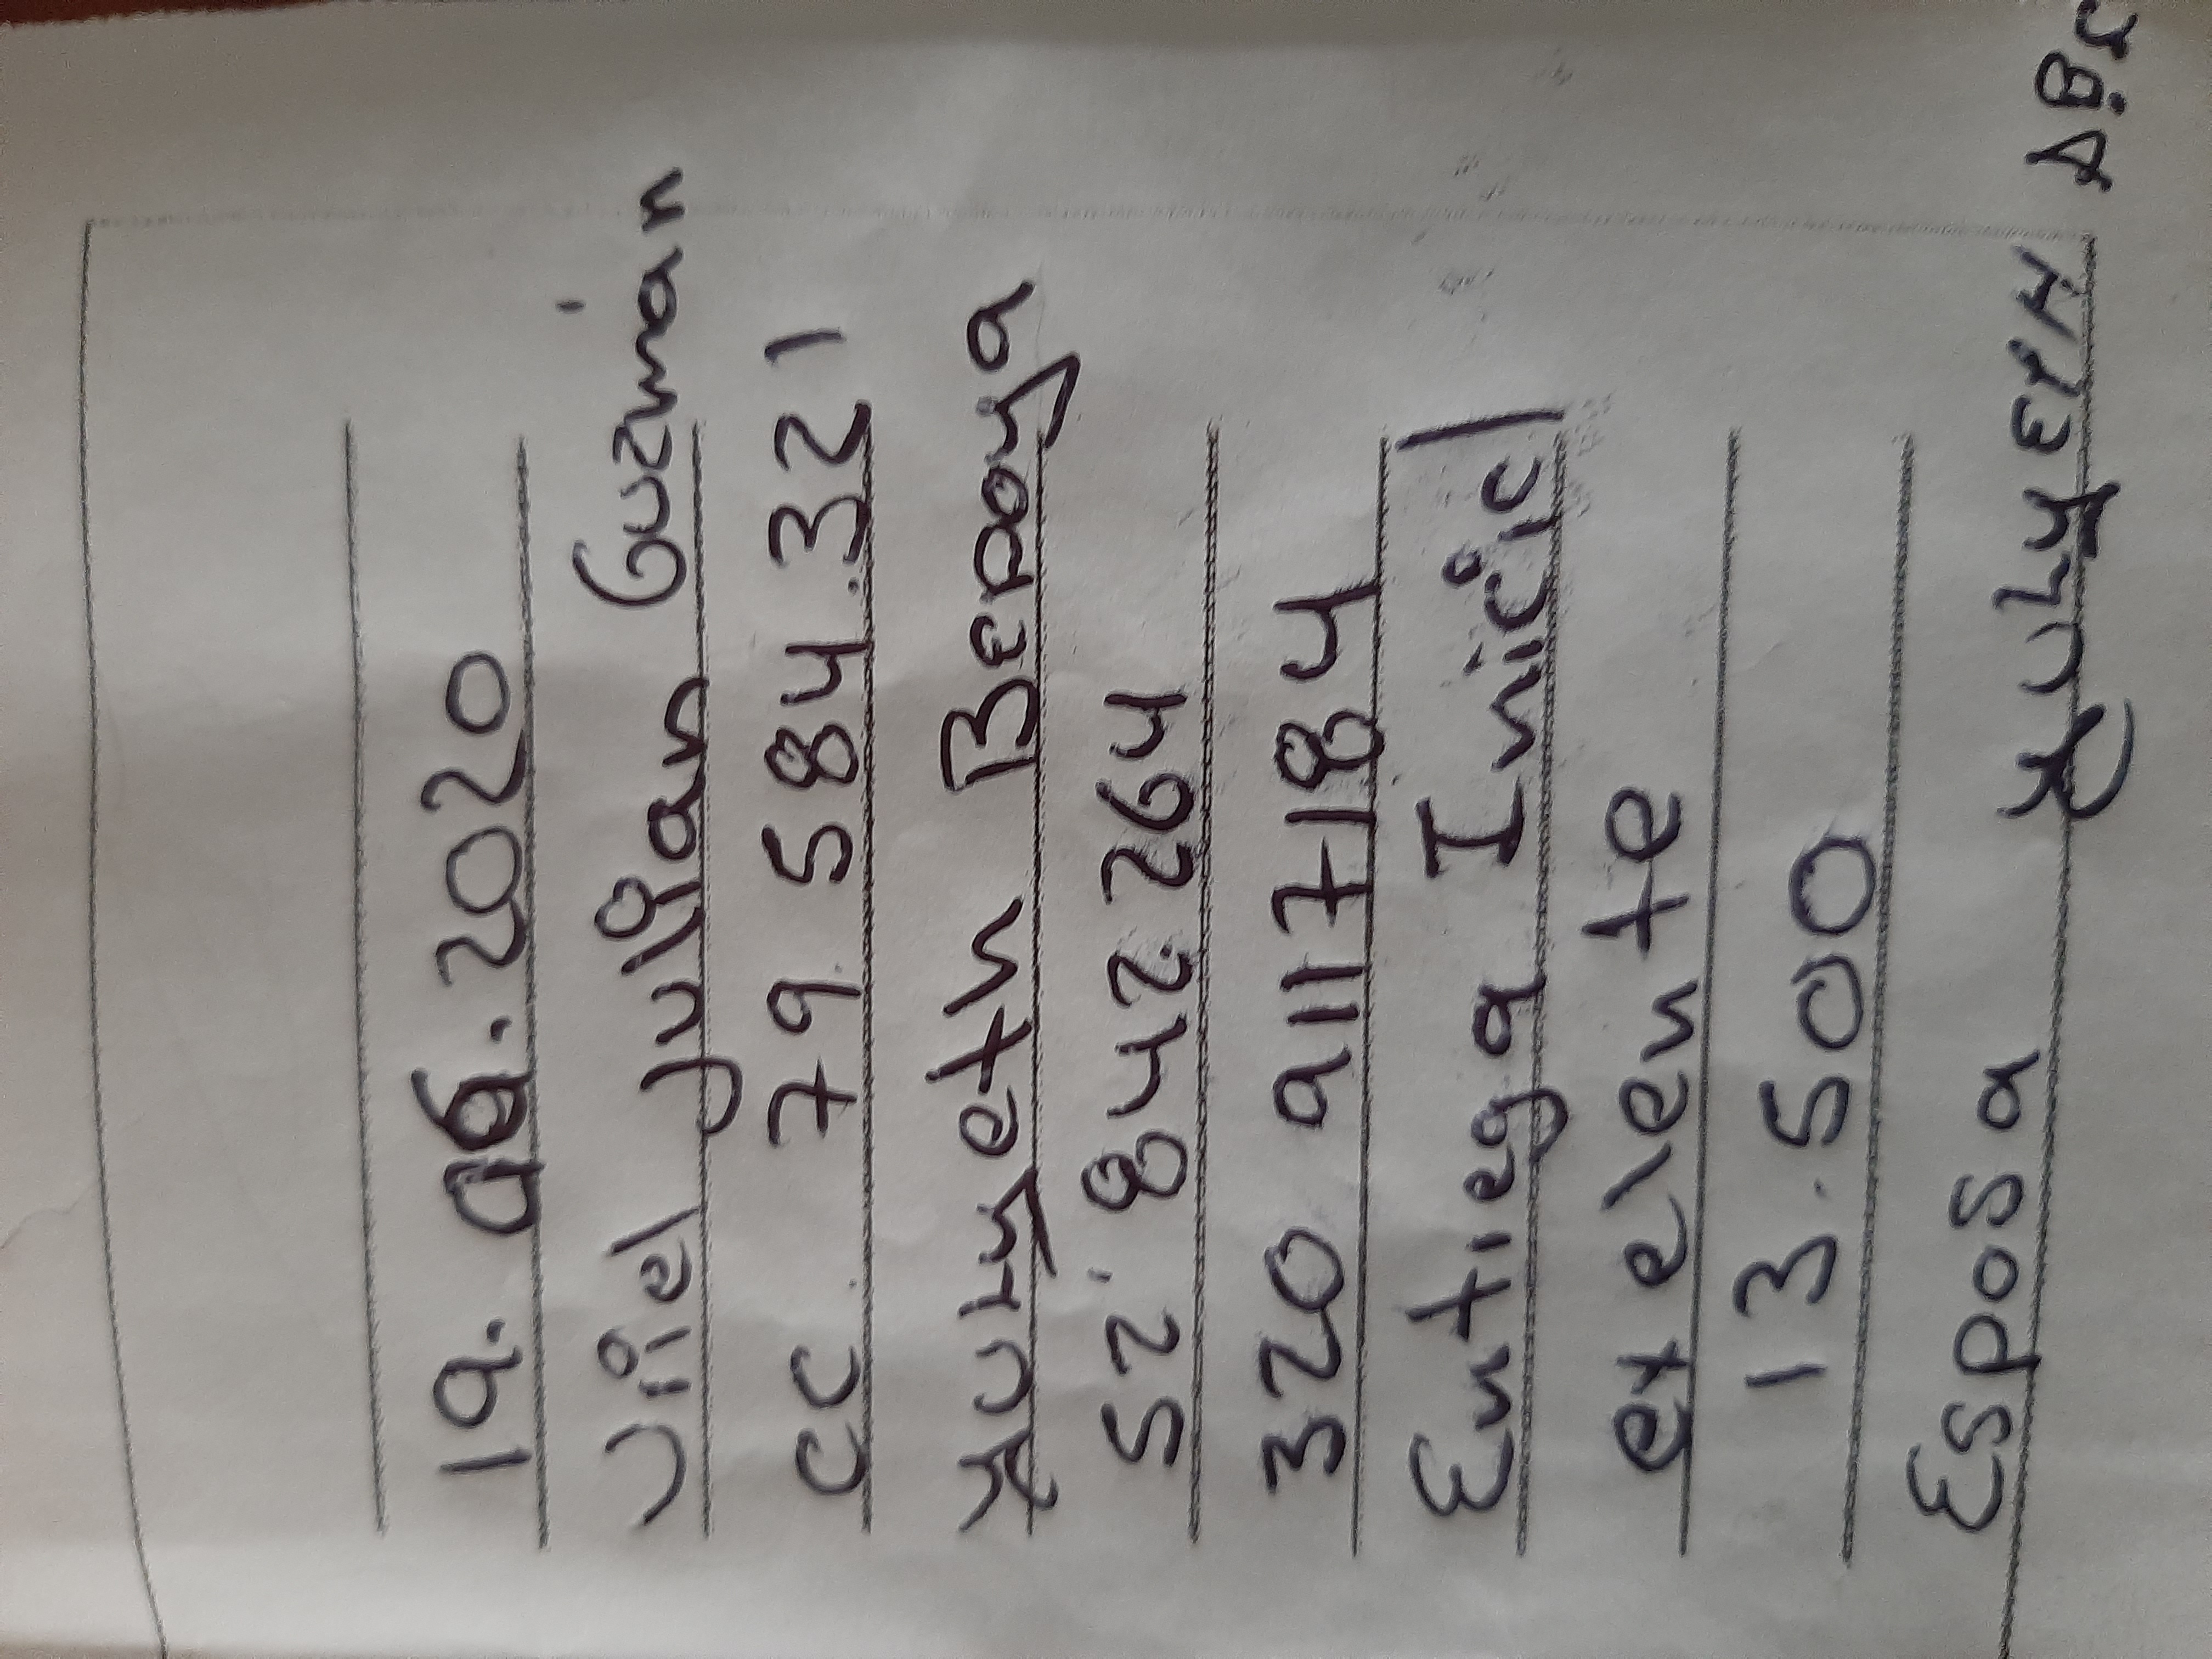 19. 06. 2020
Uriel Julian Guzmán
CC 79.584.321
Yulyeth Bedoya
52'842.264
320 9117184
Entrega Inicial
exelente
13.500
Esposa Yulyeth